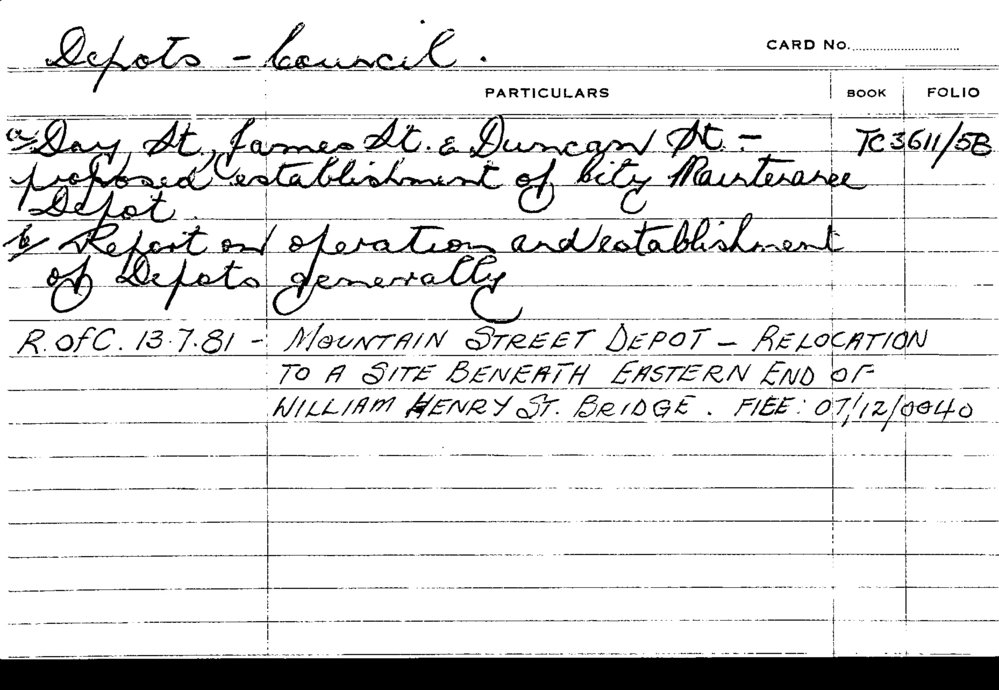 Depots - Council.
CARD No.
PARTICULARS BOOK FOLIO
a/ Day St, James St. & Duncan St. - TC3611/5B
proposed establishment of City Maintenance
Depot.
b/ Report on operation and establishment
of Depots generally
R. OfC. 13.7.81 - MOUNTAIN STREET DEPOT - RELOCATION
TO A SITE BENEATH EASTERN END OF
WILLIAM HENRY ST. BRIDGE. FILE: 07/12/0040